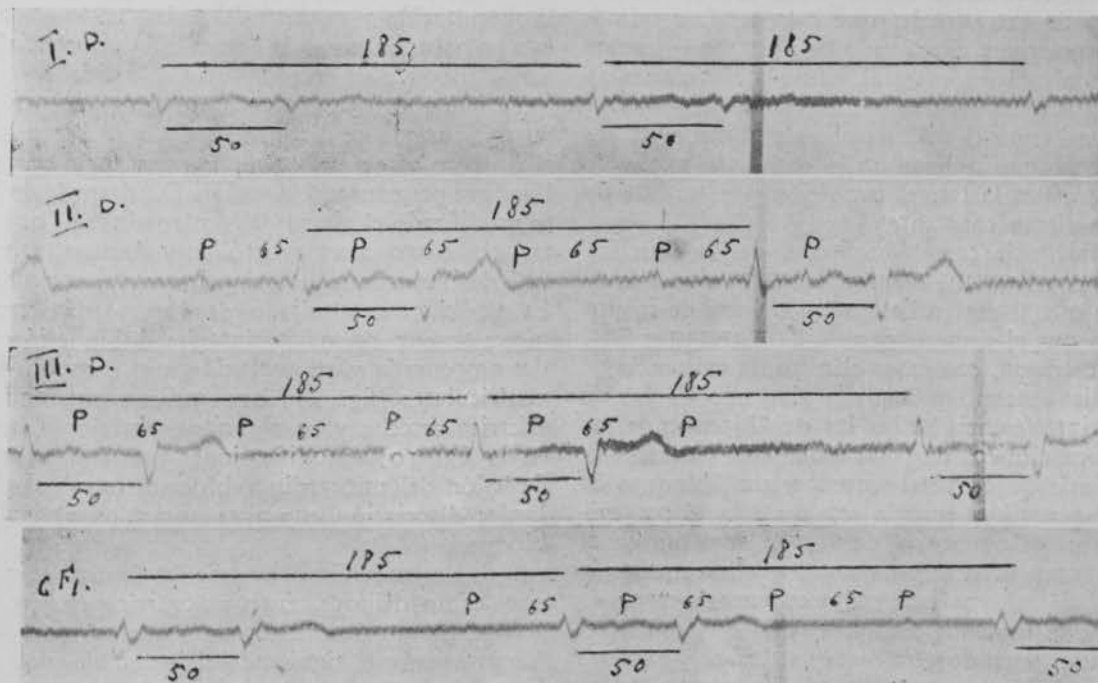 I. D. 185 185
50 50
II. D. 185
P 65 P 65 P 65 P 65 P
50 50
III. D. 185 185
P 65 P 65 P 65 P 65 P
50 50 50
CF1. 185 185
P 65 P 65 P 65 P
50 50 50